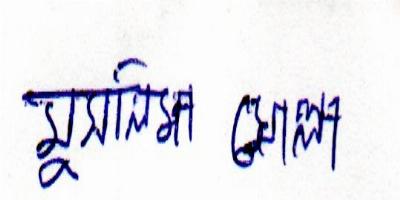 মুসলিমা মোল্লা